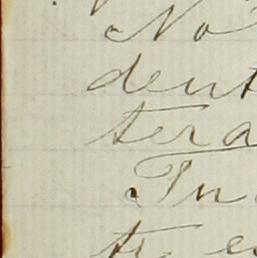 No
dent
tera
In
tr e